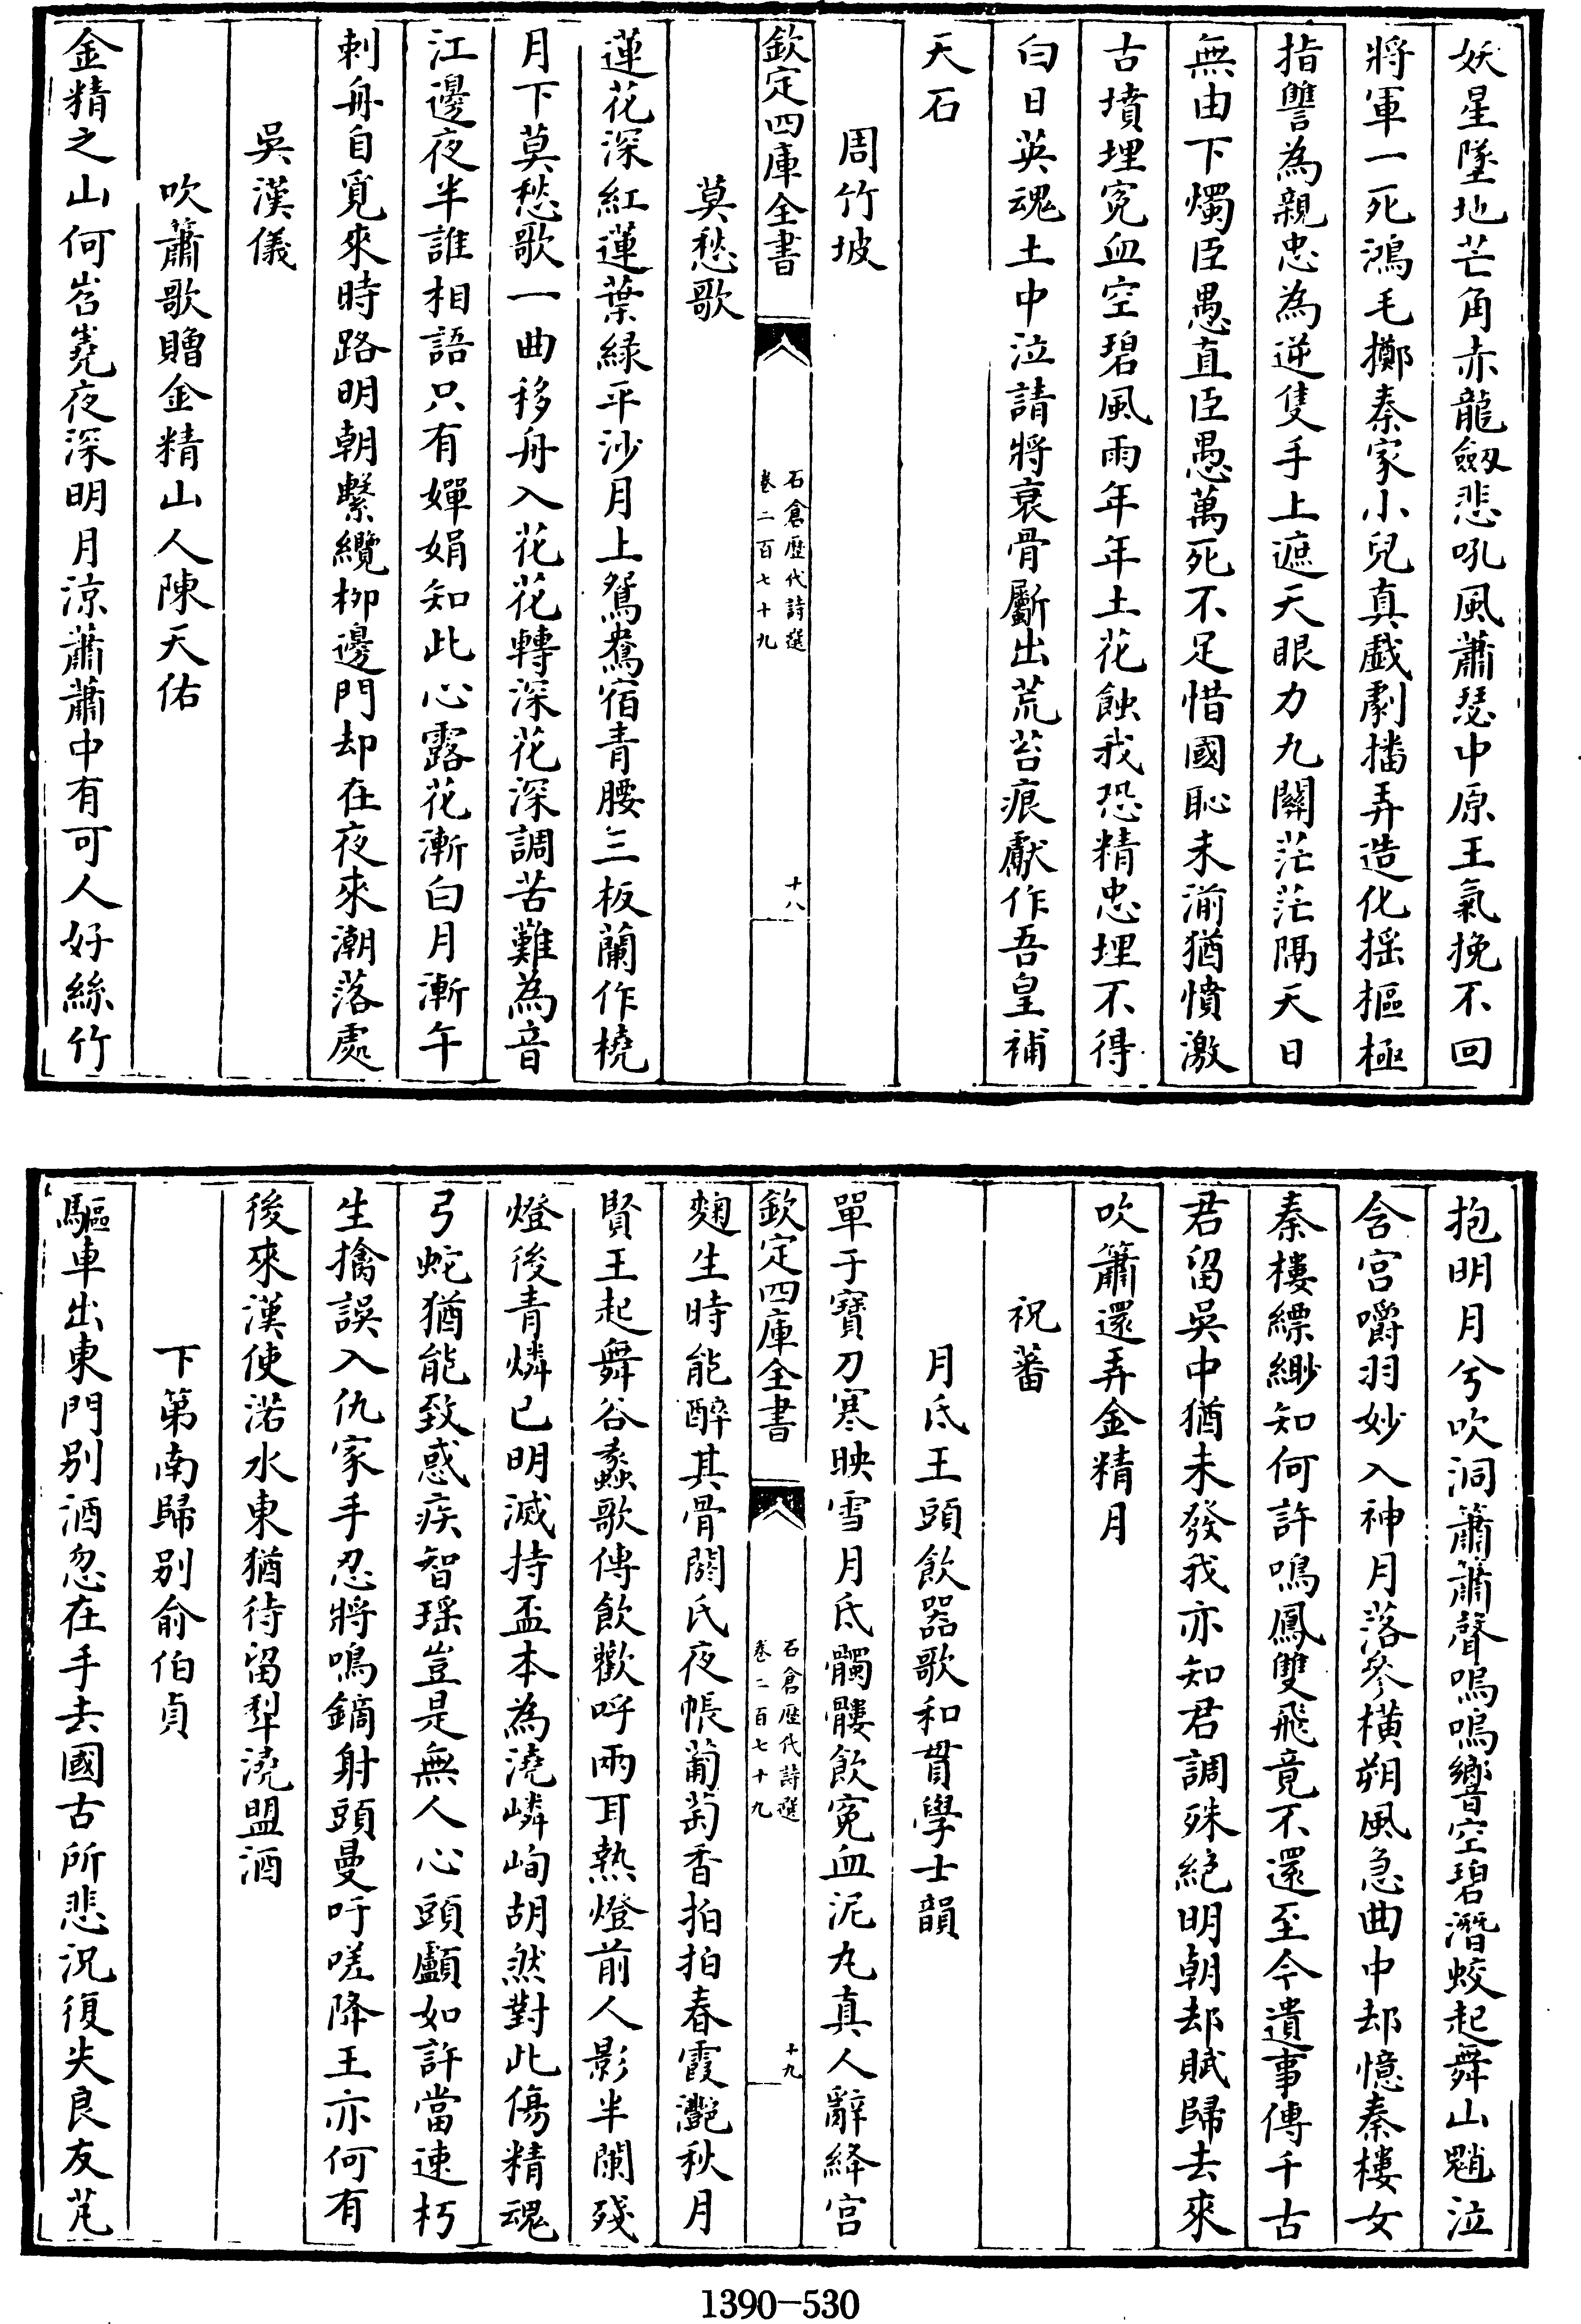 妖星墜地芒角赤龍劔悲吼風蕭瑟中原王氣挽不回
將軍一死鴻毛擲秦家小兒真戱劇播弄造化揺樞極
指讐為親忠為逆隻手上遮天眼力九關茫茫隔天日
無由下燭臣愚直臣愚萬死不足惜國恥未湔猶憤激
古墳埋寃血空碧風雨年年土花蝕我恐精忠埋不得
白日英魂土中泣請將衰骨斸出荒苔痕獻作吾皇補
天石
周竹坡
欽定四庫全書
石倉歴代詩選
卷二百七十九
十八
莫愁歌
蓮花深紅蓮葉緑平沙月上鴛鴦宿青腰三板蘭作橈
月下莫愁歌一曲移舟入花花轉深花深調苦難為音
江邊夜半誰相語只有嬋娟知此心露花漸白月漸午
刺舟自覓來時路明朝繫纜栁邊門却在夜來潮落處
吳漢儀
吹蕭歌贈金精山人陳天佑
金精之山何岧嶤夜深明月涼蕭蕭中有可人好絲竹
抱明月兮吹洞簫簫聲嗚嗚響空碧潛蛟起舞山魈泣
含宫嚼羽妙入神月落參橫朔風急曲中却憶秦樓女
秦樓縹緲知何許鳴鳳雙飛竟不還至今遺事傳千古
君留吳中猶未發我亦知君調殊絶明朝却賦歸去來
吹簫還弄金精月
祝蕃
月氐王頭飲器歌和貫學士韻
單于寶刀寒映雪月氐髑髏飲寃血泥丸真人辭絳宫
欽定四庫全書
石倉歴代詩選
卷二百七十九
十九
麴生時能醉其骨閼氏夜帳葡萄香拍拍春霞灔秋月
賢王起舞谷蠡歌傳飲歡呼兩耳熱燈前人影半闌殘
燈後青燐已明滅持盃本為澆嶙峋胡然對此傷精魂
弓蛇猶能致惑疾智瑶豈是無人心頭顱如許當速朽
生擒誤入仇家手忍將鳴鏑射頭曼吁嗟降王亦何有
後來漢使渃水東猶待留犁澆盟酒
下第南歸别俞伯貞
驅車出東門别酒忽在手去國古所悲況復失良友芃
1390-530